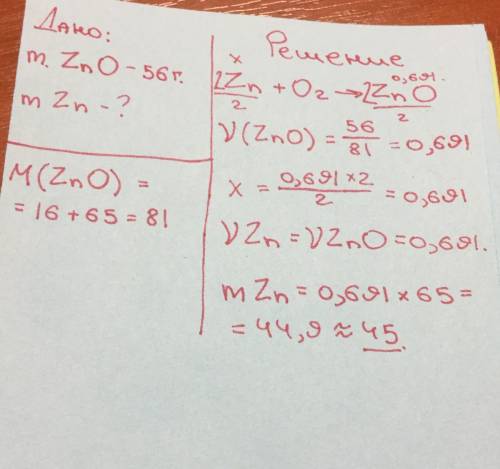 Дано:
m. ZnO - 56 г.
m Zn - ?
M(ZnO) =
= 16 + 65 = 81
Решение
x 0,691.
2Zn + O2 → 2ZnO
2 2
ν(ZnO) = 56/81 = 0,691
x = 0,691 × 2 / 2 = 0,691
νZn = νZnO = 0,691.
mZn = 0,691 × 65 =
= 44,9 ≈ 45.